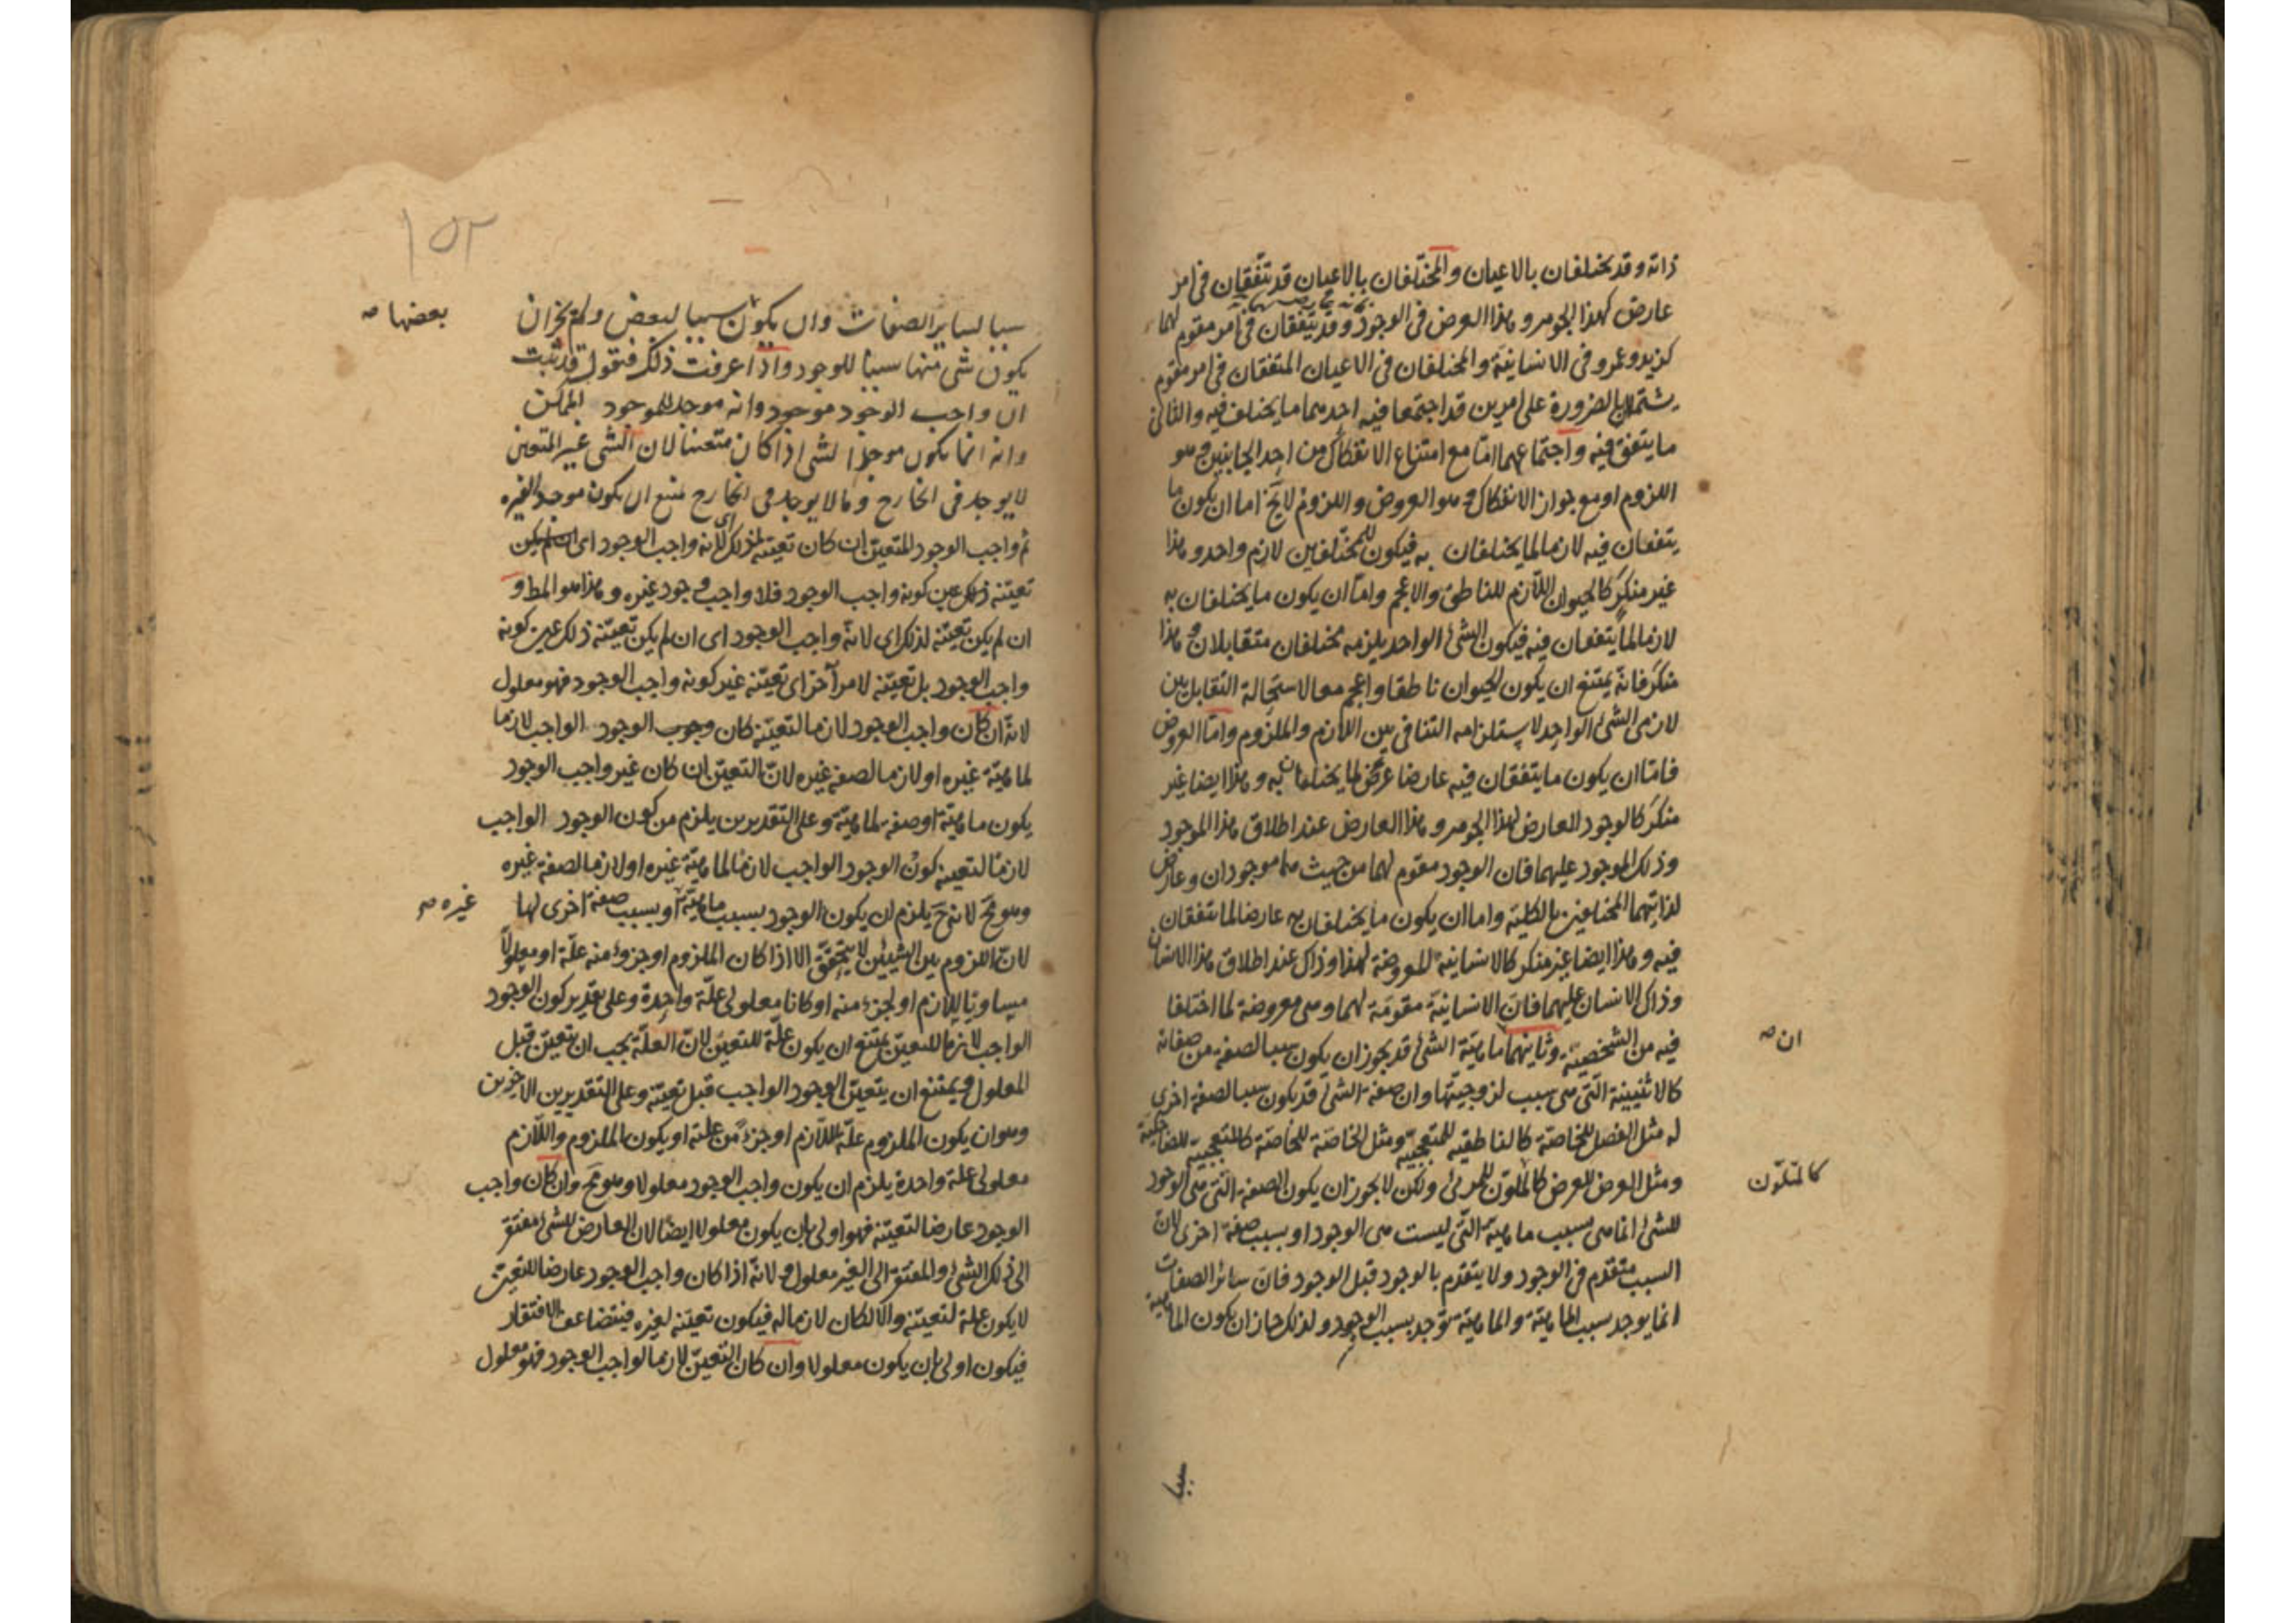 ذاته وقد يختلفان بالاعيان والمختلفان بالاعيان قد تتفقان في امر
عارض كهذا الجوهر وهذا العرض في الوجود وقد يتفقان في امر مقوم لهما
كزيد وعمرو في الانسانية والمختلفان في الاعيان المتفقان في امر مقوم
يشتملان بالضرورة على امرين قد اجتمعا فيه احدهما ما يختلف فيه والثاني
ما يتفق فيه واجتماعهما امّا مع امتناع الانفكاك من احد الجانبين وهو
اللزوم او مع جواز الانفكاك وهو العروض واللزوم لا يخ اما ان يكون ما
يتفقان فيه لازما لما يختلفان به فيكون للمختلفين لازم واحد وهذا
غير منكر كالحيوان اللازم للناطق والاعجم وامّا ان يكون ما يختلفان به
لازما لما يتفقان فيه فيكون الشئ الواحد يلزمه مختلفان متقابلان وهذا
منكر فانّه يمتنع ان يكون الحيوان ناطقا واعجم معا لاستحالة التقابل بين
لازمى الشئ الواحد لاستلزامه التنافى بين اللازم والملزوم وامّا العروض
فامّا ان يكون ما يتفقان فيه عارضا عرض لما يختلفان به وهذا ايضا غير
منكر كالوجود العارض لهذا الجوهر وهذا العارض عند اطلاق هذا الموجود
وذلك الموجود عليهما فان الوجود مقوم لهما من حيث هما موجودان وعارض
لذاتيهما المختلفين بالكلية واما ان يكون ما يختلفان به عارضا لما يتفقان
فيه وهذا ايضا غير منكر كالانسانية المعروضة لهذا وذاك عند اطلاق هذا الانسان
وذاك الانسان عليهما فان الانسانية مقومة لهما وهى معروضة لما اختلفا
فيه من الشخصية وثانيهما ماهية الشئ قد يجوز ان يكون سببا لصفة من صفاته
ان صه
كالاثنينية التى هى سبب لزوجيتها وان صفة الشئ قد يكون سببا لصفة اخرى
له مثل الفصل للخاصة كالناطقية للمتعجبية ومثل الخاصة للخاصة كالمتعجبية للضاحكية
ومثل العرض للعرض كالملون للمرئى ولكن لا يجوز ان يكون الصفة التى هى الوجود
كالمتلوّن
للشئ انما هى بسبب ماهيته التى ليست هى الوجود او بسبب صفة اخرى لان
السبب متقدم في الوجود ولا يتقدم بالوجود قبل الوجود فان سائر الصفات
انما يوجد بسبب الماهية والماهية توجد بسبب الوجود ولذلك جاز ان يكون الماهية
سببا
١٥٢
سببا لساير الصفات وان يكون سببا لبعض ولم يجز ان
بعضها صه
يكون شى منها سببا للوجود واذا اعرفت ذلك فنقول قد ثبت
ان واجب الوجود موجود وانه موجد للموجود الممكن
وانه انما يكون موجدا لشى اذا كان متعينا لان الشى غير المتعين
لا يوجد فى الخارج وما لا يوجد فى الخارج منع ان يكون موجدا لغيره
ثم واجب الوجود المتعين ان كان تعينه لذلك اى لانه واجب الوجود اى ان لم يكن
تعينه ذلك عين كونه واجب الوجود فلا واجب وجود غيره وهذا هو المط و
ان لم يكن تعينه لذلك اى لانّه واجب الوجود اى ان لم يكن تعينه ذلك عين كونه
واجب الوجود بل تعينه لامر آخر اى تعينه غير كونه واجب الوجود فهو معلول
لانه ان كان واجب الوجود لازما لتعينه كان وجوب الوجود الواجب لازما
لماهية غيره او لازما لصفة غيره لان التعين ان كان غير واجب الوجود
يكون ماهية او صفة لماهية وعلى التقديرين يلزم من كون الوجود الواجب
لازما لتعينه كون الوجود الواجب لازما لماهية غيره او لازما لصفة غيره
وهو مح لانه ح يلزم ان يكون الوجود بسبب ماهية او بسبب صفة اخرى لها
غيره صه
لان اللزوم بين الشيئين لا يتحقق الا اذا كان الملزوم او جزؤ منه علة او معلولا
مساويا للازم او لجزء منه او كانا معلولى علة واحدة وعلى تقدير كون الوجود
الواجب لازما للتعين يمتنع ان يكون علة للتعين لان العلة يجب ان تعين قبل
المعلول ويمتنع ان يتعين الوجود الواجب قبل تعينه وعلى التقديرين الاخرين
وهو ان يكون الملزوم علة للازم او جزء من علته او يكون الملزوم واللازم
معلولى علة واحدة يلزم ان يكون واجب الوجود معلولا وهو مح وان كان واجب
الوجود عارضا لتعينه فهو اولى بان يكون معلولا ايضا لان العارض للشئ مفتقر
الى ذلك الشئ والمفتقر الى الغير معلول ولانه اذا كان واجب الوجود عارضا للتعين
لا يكون علة لتعينه والا لكان لازما له فيكون تعينه لغيره فيتضاعف الافتقار
فيكون اولى بان يكون معلولا وان كان التعين لازما لواجب الوجود فهو معلول